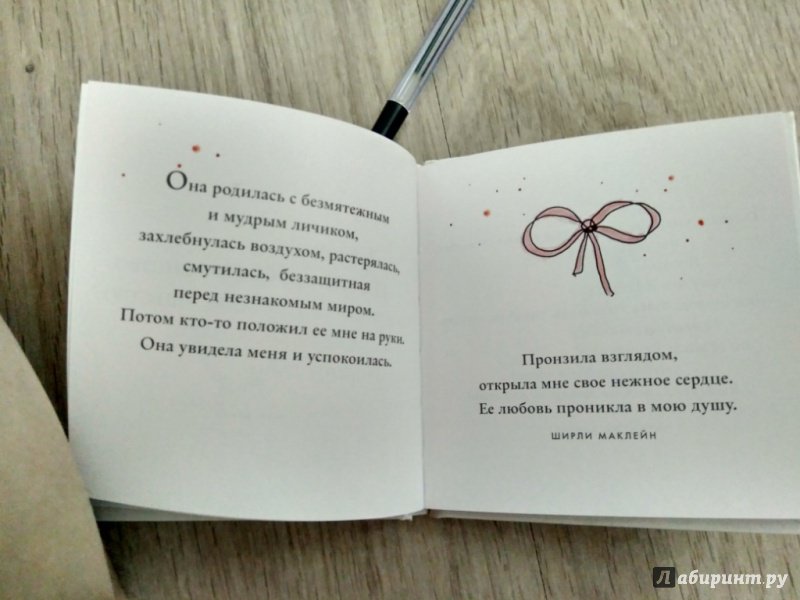 Она родилась с безмятежным
и мудрым личиком,
захлебнулась воздухом, растерялась,
смутилась, беззащитная
перед незнакомым миром.
Потом кто-то положил ее мне на руки.
Она увидела меня и успокоилась.
Пронзила взглядом,
открыла мне свое нежное сердце.
Ее любовь проникла в мою душу.
ШИРЛИ МАКЛЕЙН
Лабиринт.ру